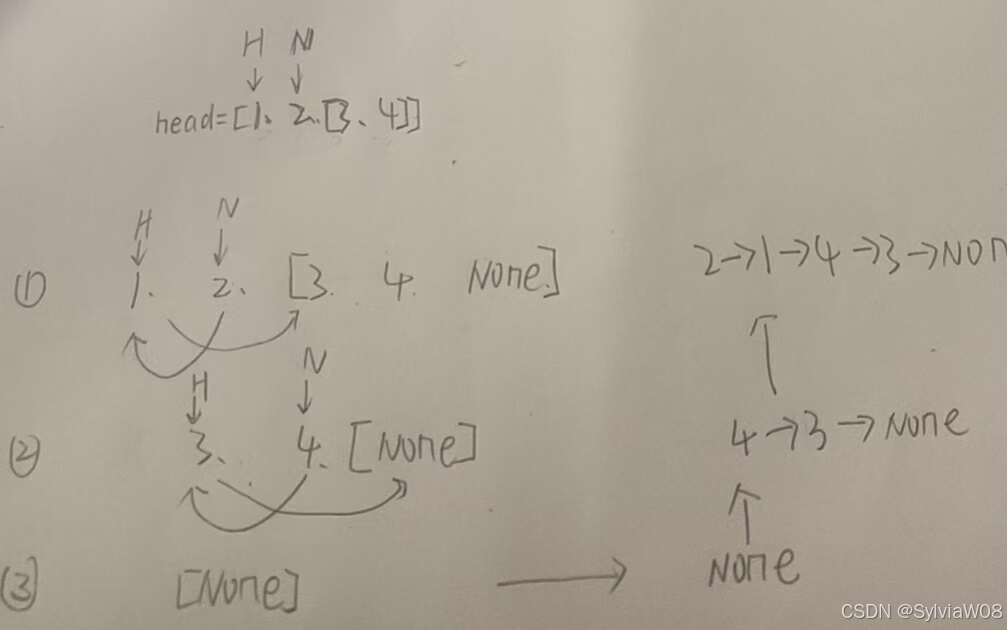 H N
↓ ↓
head=[1、2、[3、4]]
H N
↓ ↓
① 1、 2、 [3. 4. None] 2→1→4→3→Non
H N
↓ ↓
② 3、 4、 [None] 4→3→None
③ [None] → None
CSDN @SylviaW08